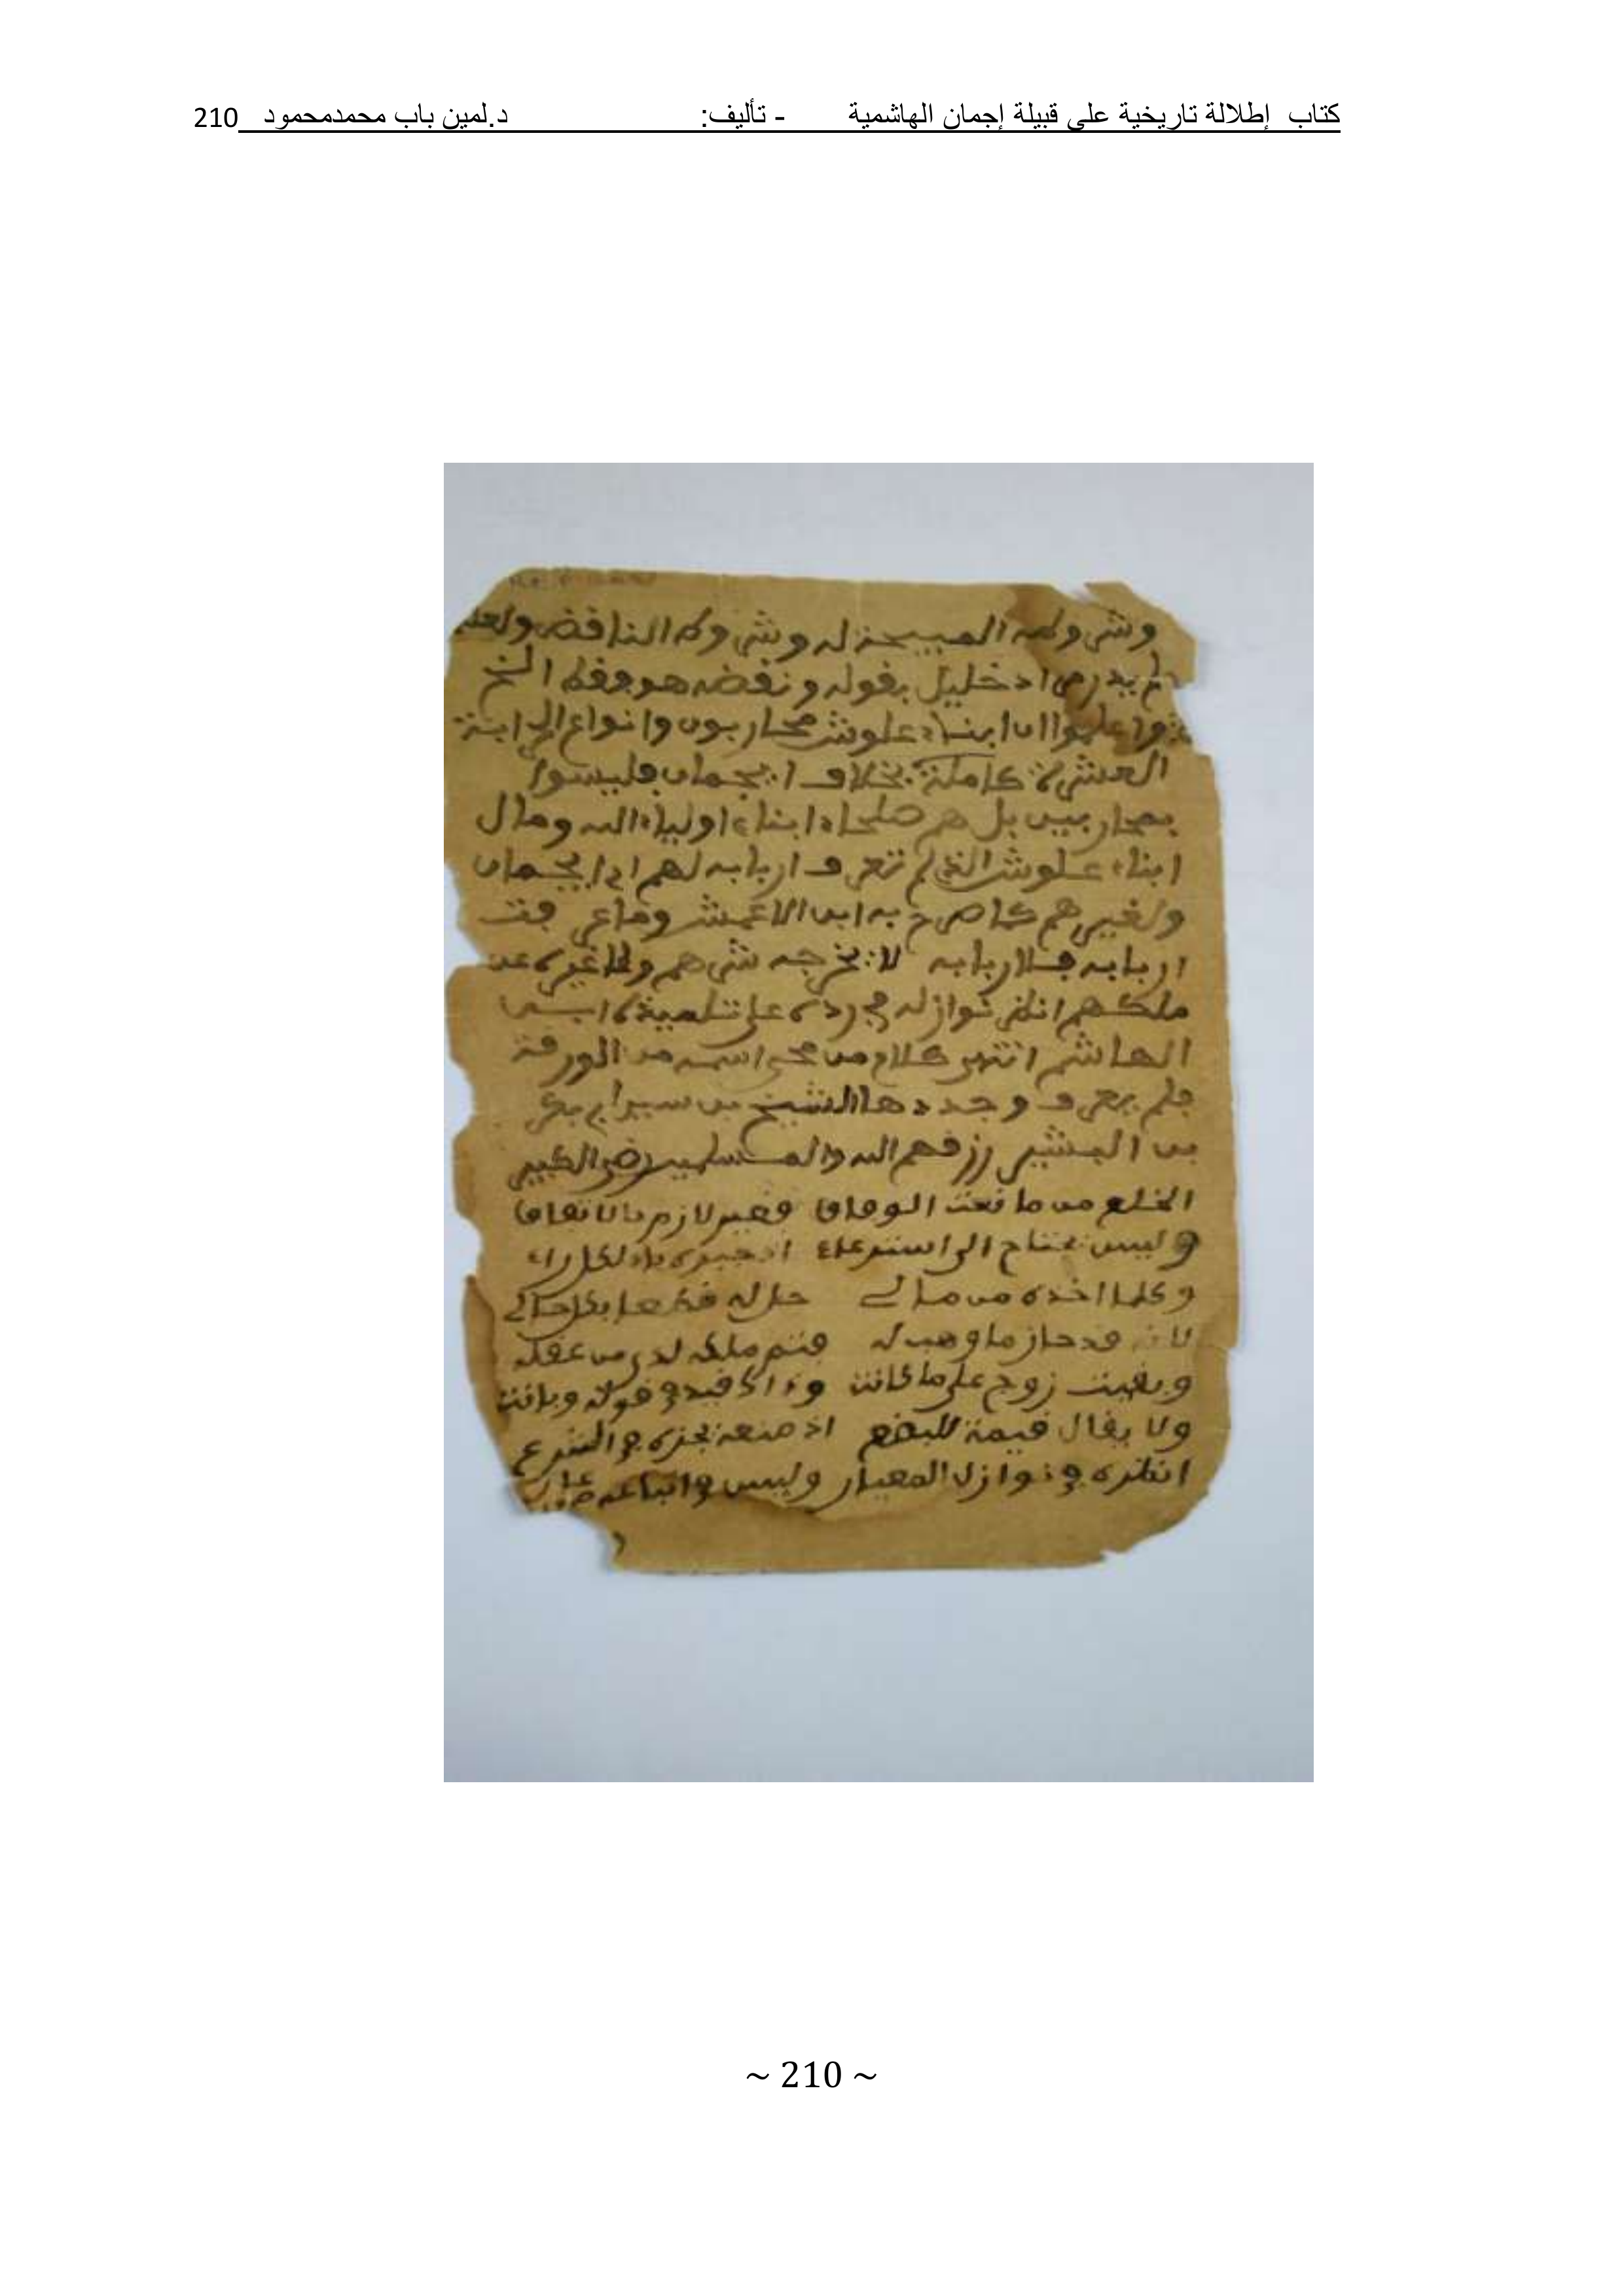 كتاب إطلالة تاريخية على قبيلة إجمان الهاشمية - تأليف: د.لمين باب محمدمحمود 210
وشروطه المبيحة له وشروط الناقض ولعله
لم يدر ما اد خليل بقوله ونقضه هو فقط الخ
اعلموا ان ابناء علوش محاربون وانواع الحرابة
العشرة كاملة بخلاف ايجمان فليسوا
بمحاربين بل هم صلحاء ابناء اولياء الله ومال
ابناء علوش الذي لم تعرف اربابه لهم اي ايجمان
ولغيرهم كما صرح به ابن الاعمش وما عرفت
اربابه فلاربابه لا يخرجه شراهم ولا غيره عن
ملكهم انظر نوازله مجردة على تلميذه ابن
الهاشم انتهى كلام من محي اسمه من الورقة
فلم يعرف وجددها الشيخ بن سيد ابي بكر
بن البشير رزقهم الله والمسلمين رضى الكبير
الخلع من ما نعت الوفاق فغير لازم بالاتفاق
وليس يحتاج الى استرعاء اذ جبره باد لكل راء
وكلما اخذه من مالي حل له قطعا بكل حال
لانه قد حاز ما وهب له فتم ملكه لدى من عقله
وبقيت زوج على ما كانت وذاك قيد في قوله وبانت
ولا يقال قيمة للبضع اذ منعه بجزه في الشرع
انظره في نوازل المعيار وليس في اتباعه من
~ 210 ~